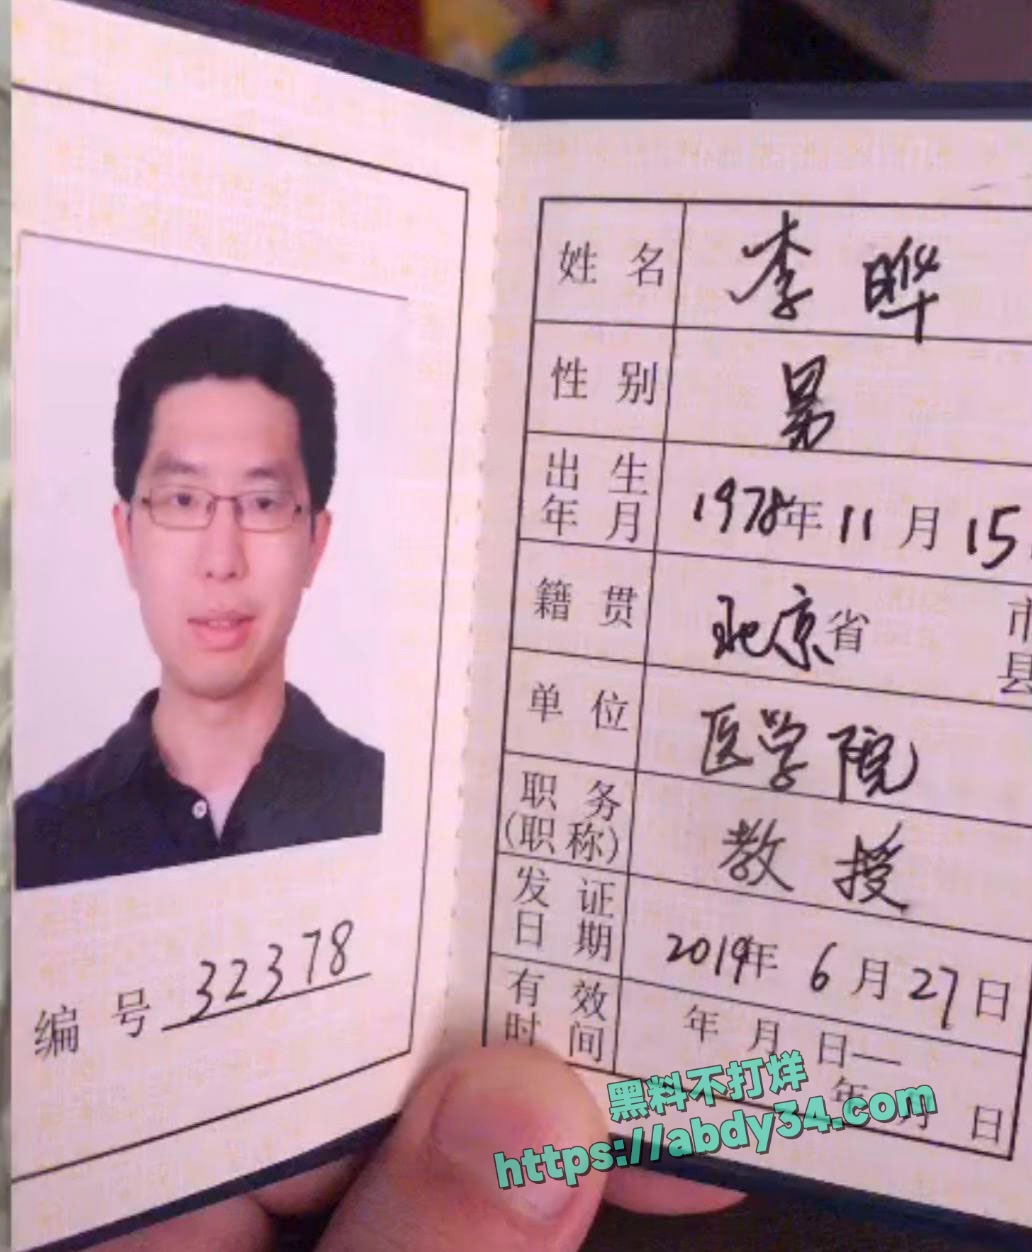 编 号 32378
姓 名 李 晔
性 别 男
出 生
年 月 1978年 11 月 15
籍 贯 北京省 市
县
单 位 医学院
职 务
(职 称) 教 授
发 证
日 期 2019年 6 月 27 日
有 效
时 间 年 月 日—
年 月 日
黑料不打烊
https://abdy34.com